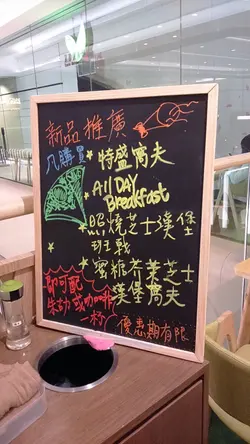 新品推廣
凡購買
特盛窩夫
All DAY
Breakfast
照燒芝士漢堡
班戟
蜜糖芥茉芝士
漢堡窩夫
即可配
朱古或咖啡
一杯
優惠期有限